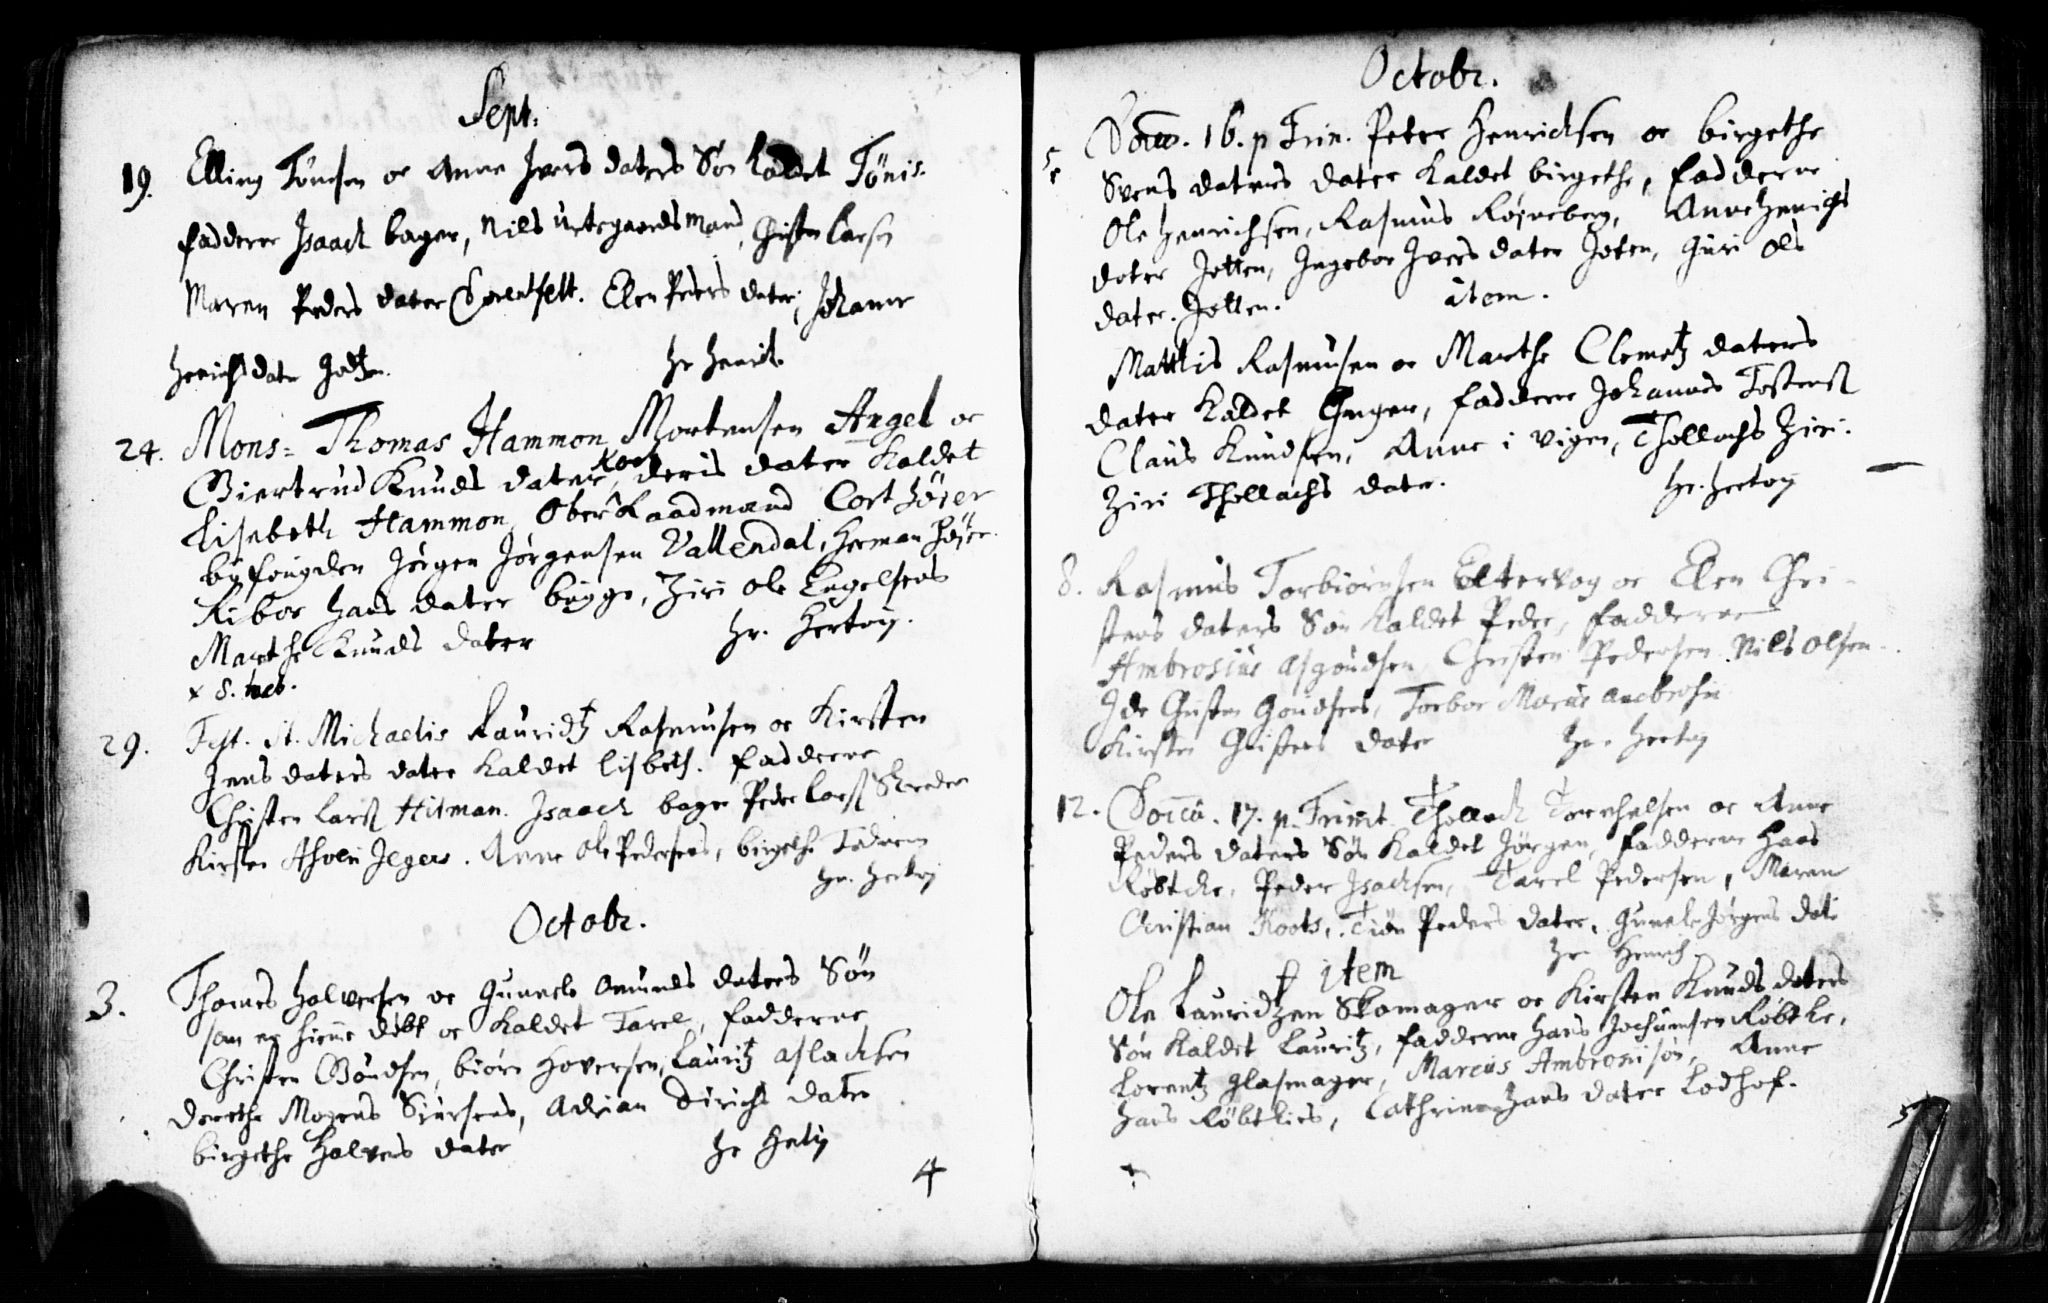 Sept.
19. Elling Tönesen oc Anne Ivers daters Søn kaldet Tönis.
fadderne Isaach bager, Nils Urtegaardsmand, Christen Larsen
Maren Peders dater Elen Peders dater, Johanne
Henrichs dater hr Henrich
24. Mons= Thomas Hammon Mortensen Angel oc
Giertrud Knuds dater Koch, deris dater kaldet
Lisebeth Hammon, Ober Raadmand Cort Høyer
byfougden Jørgen Jørgensen Vallendal, Herman Høyer.
Ribor Hans dater bugge, Ziri Ole Engelsens
Marthe Knuds dater hr. Hertvig.
x 8.
29. Fest. St. Michaelis Lauridtz Rasmusen oc Kirsten
Jens daters dater kaldet lisbeth. fadderne
Christen Larsß Hitman. Isaach bager Peder Larsß Skreder
Kirsten Jegers. Anne Ole Pedersens, birgethe
hr. Hertvig
Octobr.
3. Thomes Halversen oc Gunnele Omunds daters Søn
som er hieme døbt oc kaldet Tarel, fadderne
Christen Gøudsen, biørn Hoversen, Lauritz Aslachsen
Dorethe Mogens Siursens, Adrian Dirichs dater
birgethe Halvers dater hr Hertvig
4
Octobr.
5. Dom. 16. p Trin. Peter Henrichsen oc birgethe
Svens daters dater kaldet birgethe, fadderne
Ole Henrichsen, Rasmus Anne Henrichs
dater Jotten, Ingebor Ivers dater Joten, Guri Ols
dater. Jotten. item.
Mattis Rasmusen oc Marthe Clemetz daters
dater kaldet Inger, fadderne Johannes Tostensß
Claus Knudsen, Anne i vigen, Thollachs Ziri.
Ziri Thollachs dater. hr. Hertvig
8. Rasmus Torbiörnsen Eltervog oc Elen Chri-
stens daters Søn kaldet Peder, fadderne
Ambrosius Asgoudsen, Christen Pedersen. Nils Olsen.
Ide Christen Goudsens, Torbor Marcus Ambrosii
Kirsten Christens dater hr. Hertvig
12. Dom. 17. p. Trinit. Thollach Torchelsen oc Anne
Peders daters Søn kaldet Jørgen, fadderne Hans
Røbtche, Peder Isachsen, Tarel Pedersen, Maren
Christian Koots, Tiøn Peders dater, Gunele Jørgens dat:
hr. Henrich.
item
Ole Lauridtzen Skomager oc Kirsten Knuds daters
Søn kaldet Lauritz, fadderne Hans Jochumsen Røbtke,
Lorentz glasmager, Marcus Ambrosisøn, Anne
Hans Røbtkis, Cathrina Hans dater Lodhof.